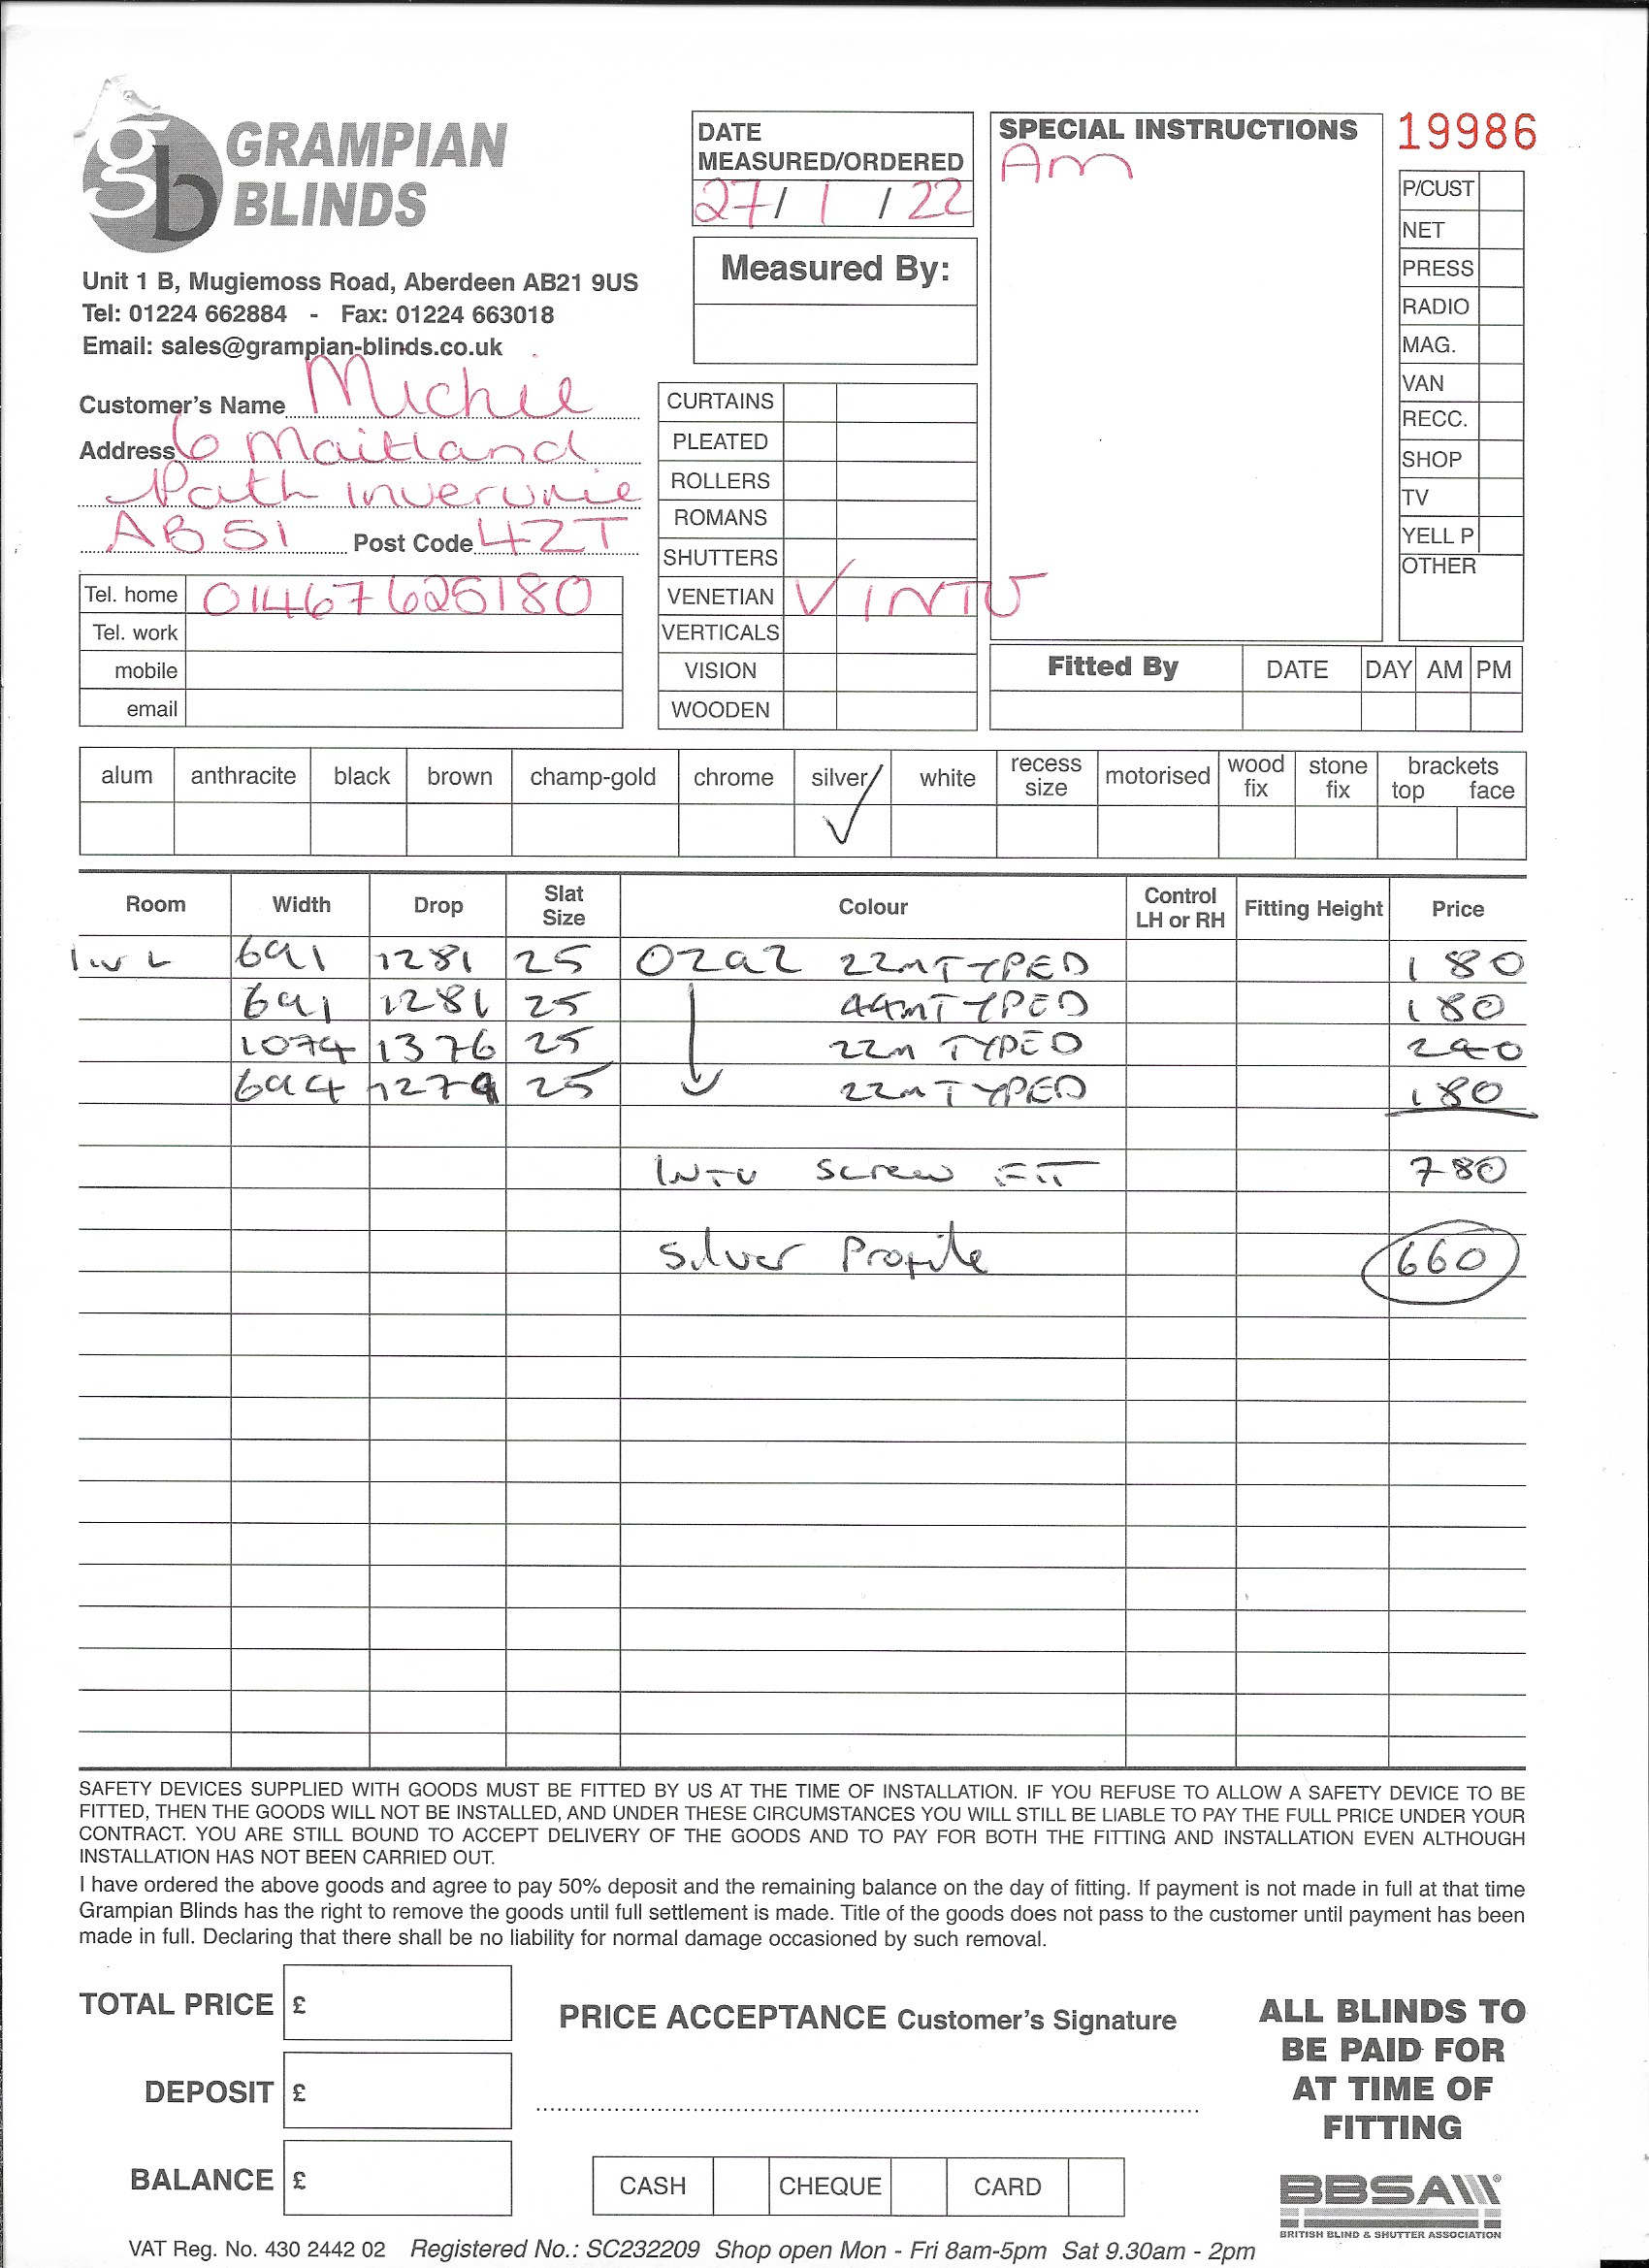 gb GRAMPIAN BLINDS
Unit 1 B, Mugiemoss Road, Aberdeen AB21 9US
Tel: 01224 662884 - Fax: 01224 663018
Email: sales@grampian-blinds.co.uk
Customer's Name Michie
Address 6 Maitland
Path Inverurie
AB51 Post Code 4ZT
Tel. home 01467625180
Tel. work
mobile
email
DATE
MEASURED/ORDERED
27/1/22
Measured By:
CURTAINS
PLEATED
ROLLERS
ROMANS
SHUTTERS
VENETIAN ✓ INTU
VERTICALS
VISION
WOODEN
SPECIAL INSTRUCTIONS
Am
19986
P/CUST
NET
PRESS
RADIO
MAG.
VAN
RECC.
SHOP
TV
YELL P
OTHER
Fitted By DATE DAY AM PM
alum anthracite black brown champ-gold chrome silver white recess size motorised wood fix stone fix brackets top face
✓
Room Width Drop Slat Size Colour Control LH or RH Fitting Height Price
691 1281 25 0292 22m TYPED 180
691 1281 25 44m TYPED 180
1074 1376 25 22m TYPED 240
694 1279 25 22m TYPED 180
INTU Screw FIT 780
Silver Profile 660
SAFETY DEVICES SUPPLIED WITH GOODS MUST BE FITTED BY US AT THE TIME OF INSTALLATION. IF YOU REFUSE TO ALLOW A SAFETY DEVICE TO BE
FITTED, THEN THE GOODS WILL NOT BE INSTALLED, AND UNDER THESE CIRCUMSTANCES YOU WILL STILL BE LIABLE TO PAY THE FULL PRICE UNDER YOUR
CONTRACT. YOU ARE STILL BOUND TO ACCEPT DELIVERY OF THE GOODS AND TO PAY FOR BOTH THE FITTING AND INSTALLATION EVEN ALTHOUGH
INSTALLATION HAS NOT BEEN CARRIED OUT.
I have ordered the above goods and agree to pay 50% deposit and the remaining balance on the day of fitting. If payment is not made in full at that time
Grampian Blinds has the right to remove the goods until full settlement is made. Title of the goods does not pass to the customer until payment has been
made in full. Declaring that there shall be no liability for normal damage occasioned by such removal.
TOTAL PRICE £
DEPOSIT £
BALANCE £
PRICE ACCEPTANCE Customer's Signature
CASH CHEQUE CARD
ALL BLINDS TO
BE PAID FOR
AT TIME OF
FITTING
BBSA
BRITISH BLIND & SHUTTER ASSOCIATION
VAT Reg. No. 430 2442 02 Registered No.: SC232209 Shop open Mon - Fri 8am-5pm Sat 9.30am - 2pm